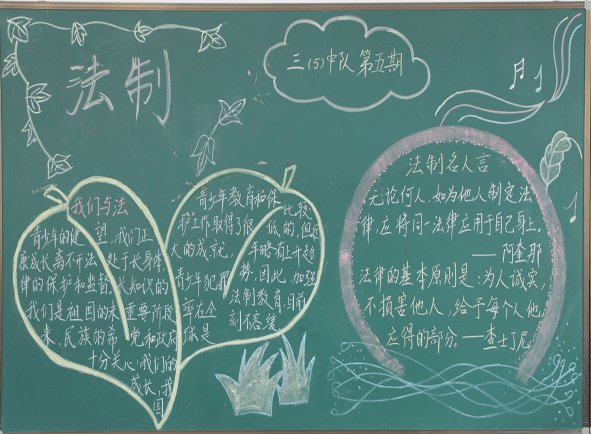 法制
三(5)中队 第五期
我们与法
青少年的健
康成长离不开法
律的保护和监督,
我们是祖国的未
来,民族的希
望,我们正
处于长身体
长知识的
重要阶段
党和政府
十分关心我们的
成长,我
国
青少年教育和保
护工作取得了很
大的成就,
青少年犯罪
率在全
球是
比较
低的,但
年略有上升趋
势,因此,加强
法制教育,目前
刻不容缓
法制名人言
无论何人,如为他人制定法
律,应将同一法律应用于自己身上。
——阿奎那
法律的基本原则是:为人诚实,
不损害他人,给予每个人他
应得的部分。——查士丁尼